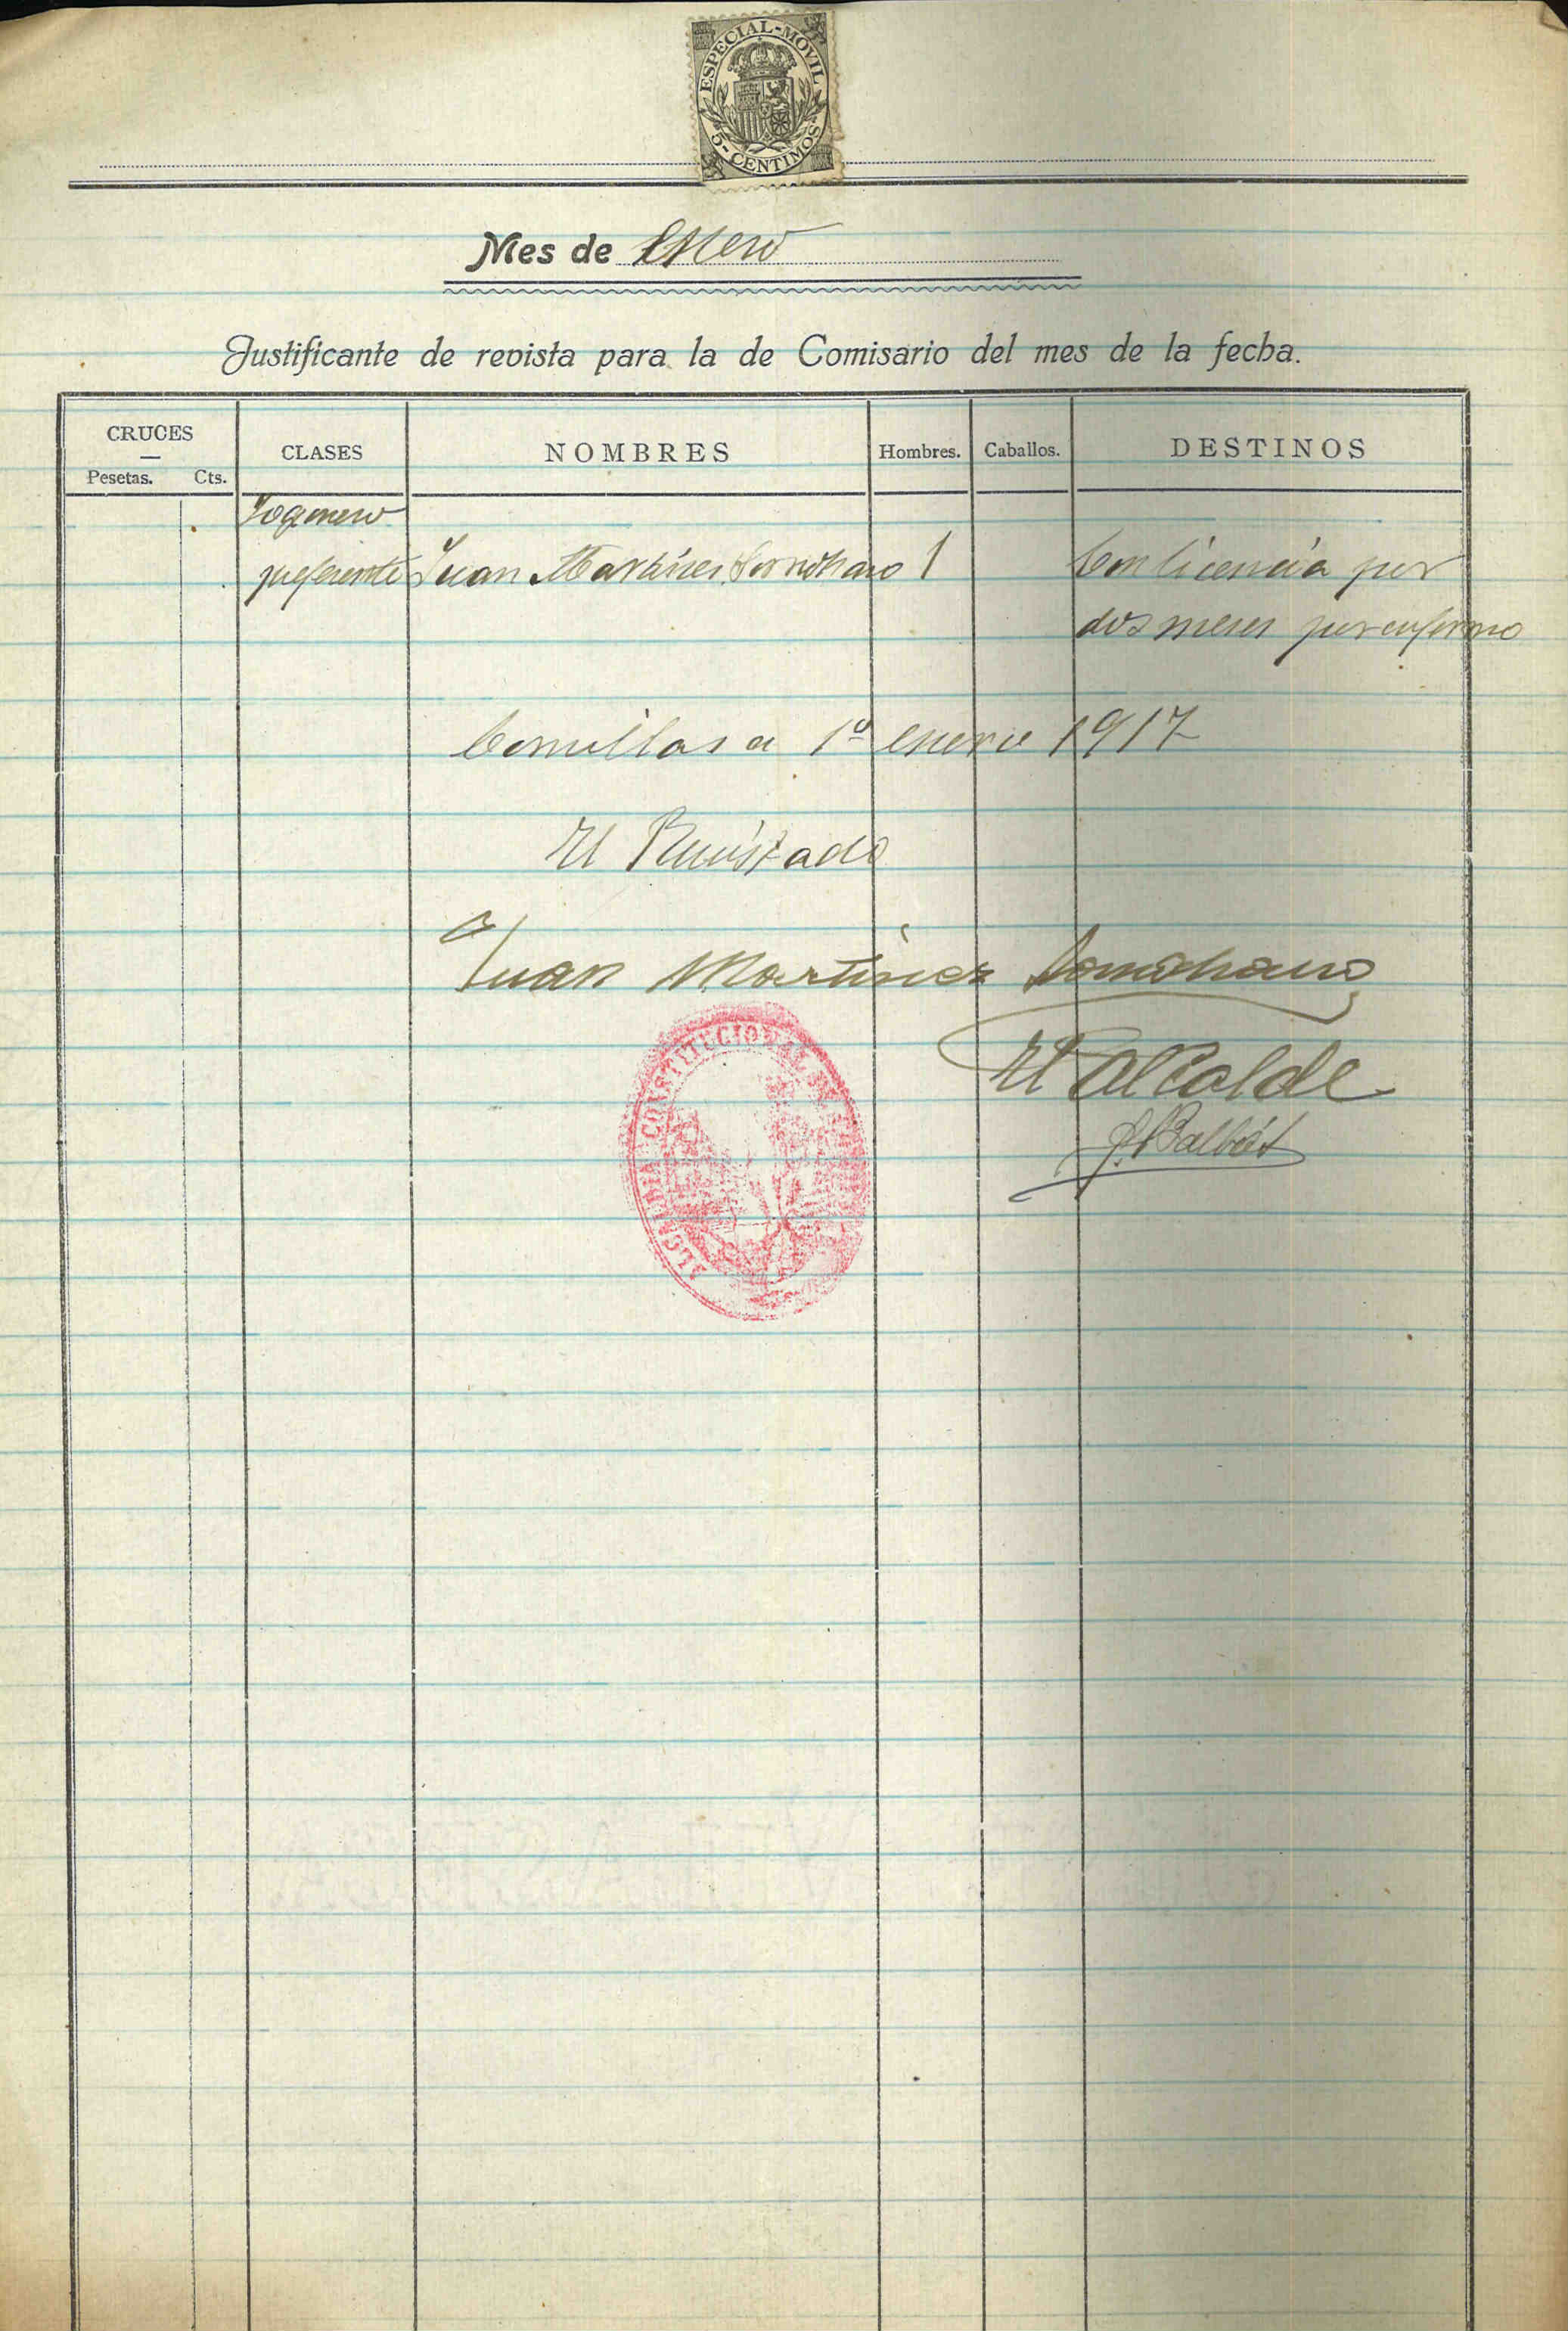 ESPECIAL-MOVIL
5-CENTIMOS
Mes de Enero
Justificante de revista para la de Comisario del mes de la fecha.
CRUCES CLASES NOMBRES Hombres. Caballos. DESTINOS
Pesetas. Cts.
Fogonero
preferente Juan Martinez 1 Con licencia por
dos meses por enfermo
Comillas a 1º enero 1917
El Revistado
Juan Martinez
El Alcalde
ALCALDIA CONSTITUCIONAL DE